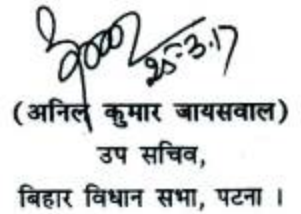 25.3.17
(अनिल कुमार जायसवाल)
उप सचिव,
बिहार विधान सभा, पटना ।